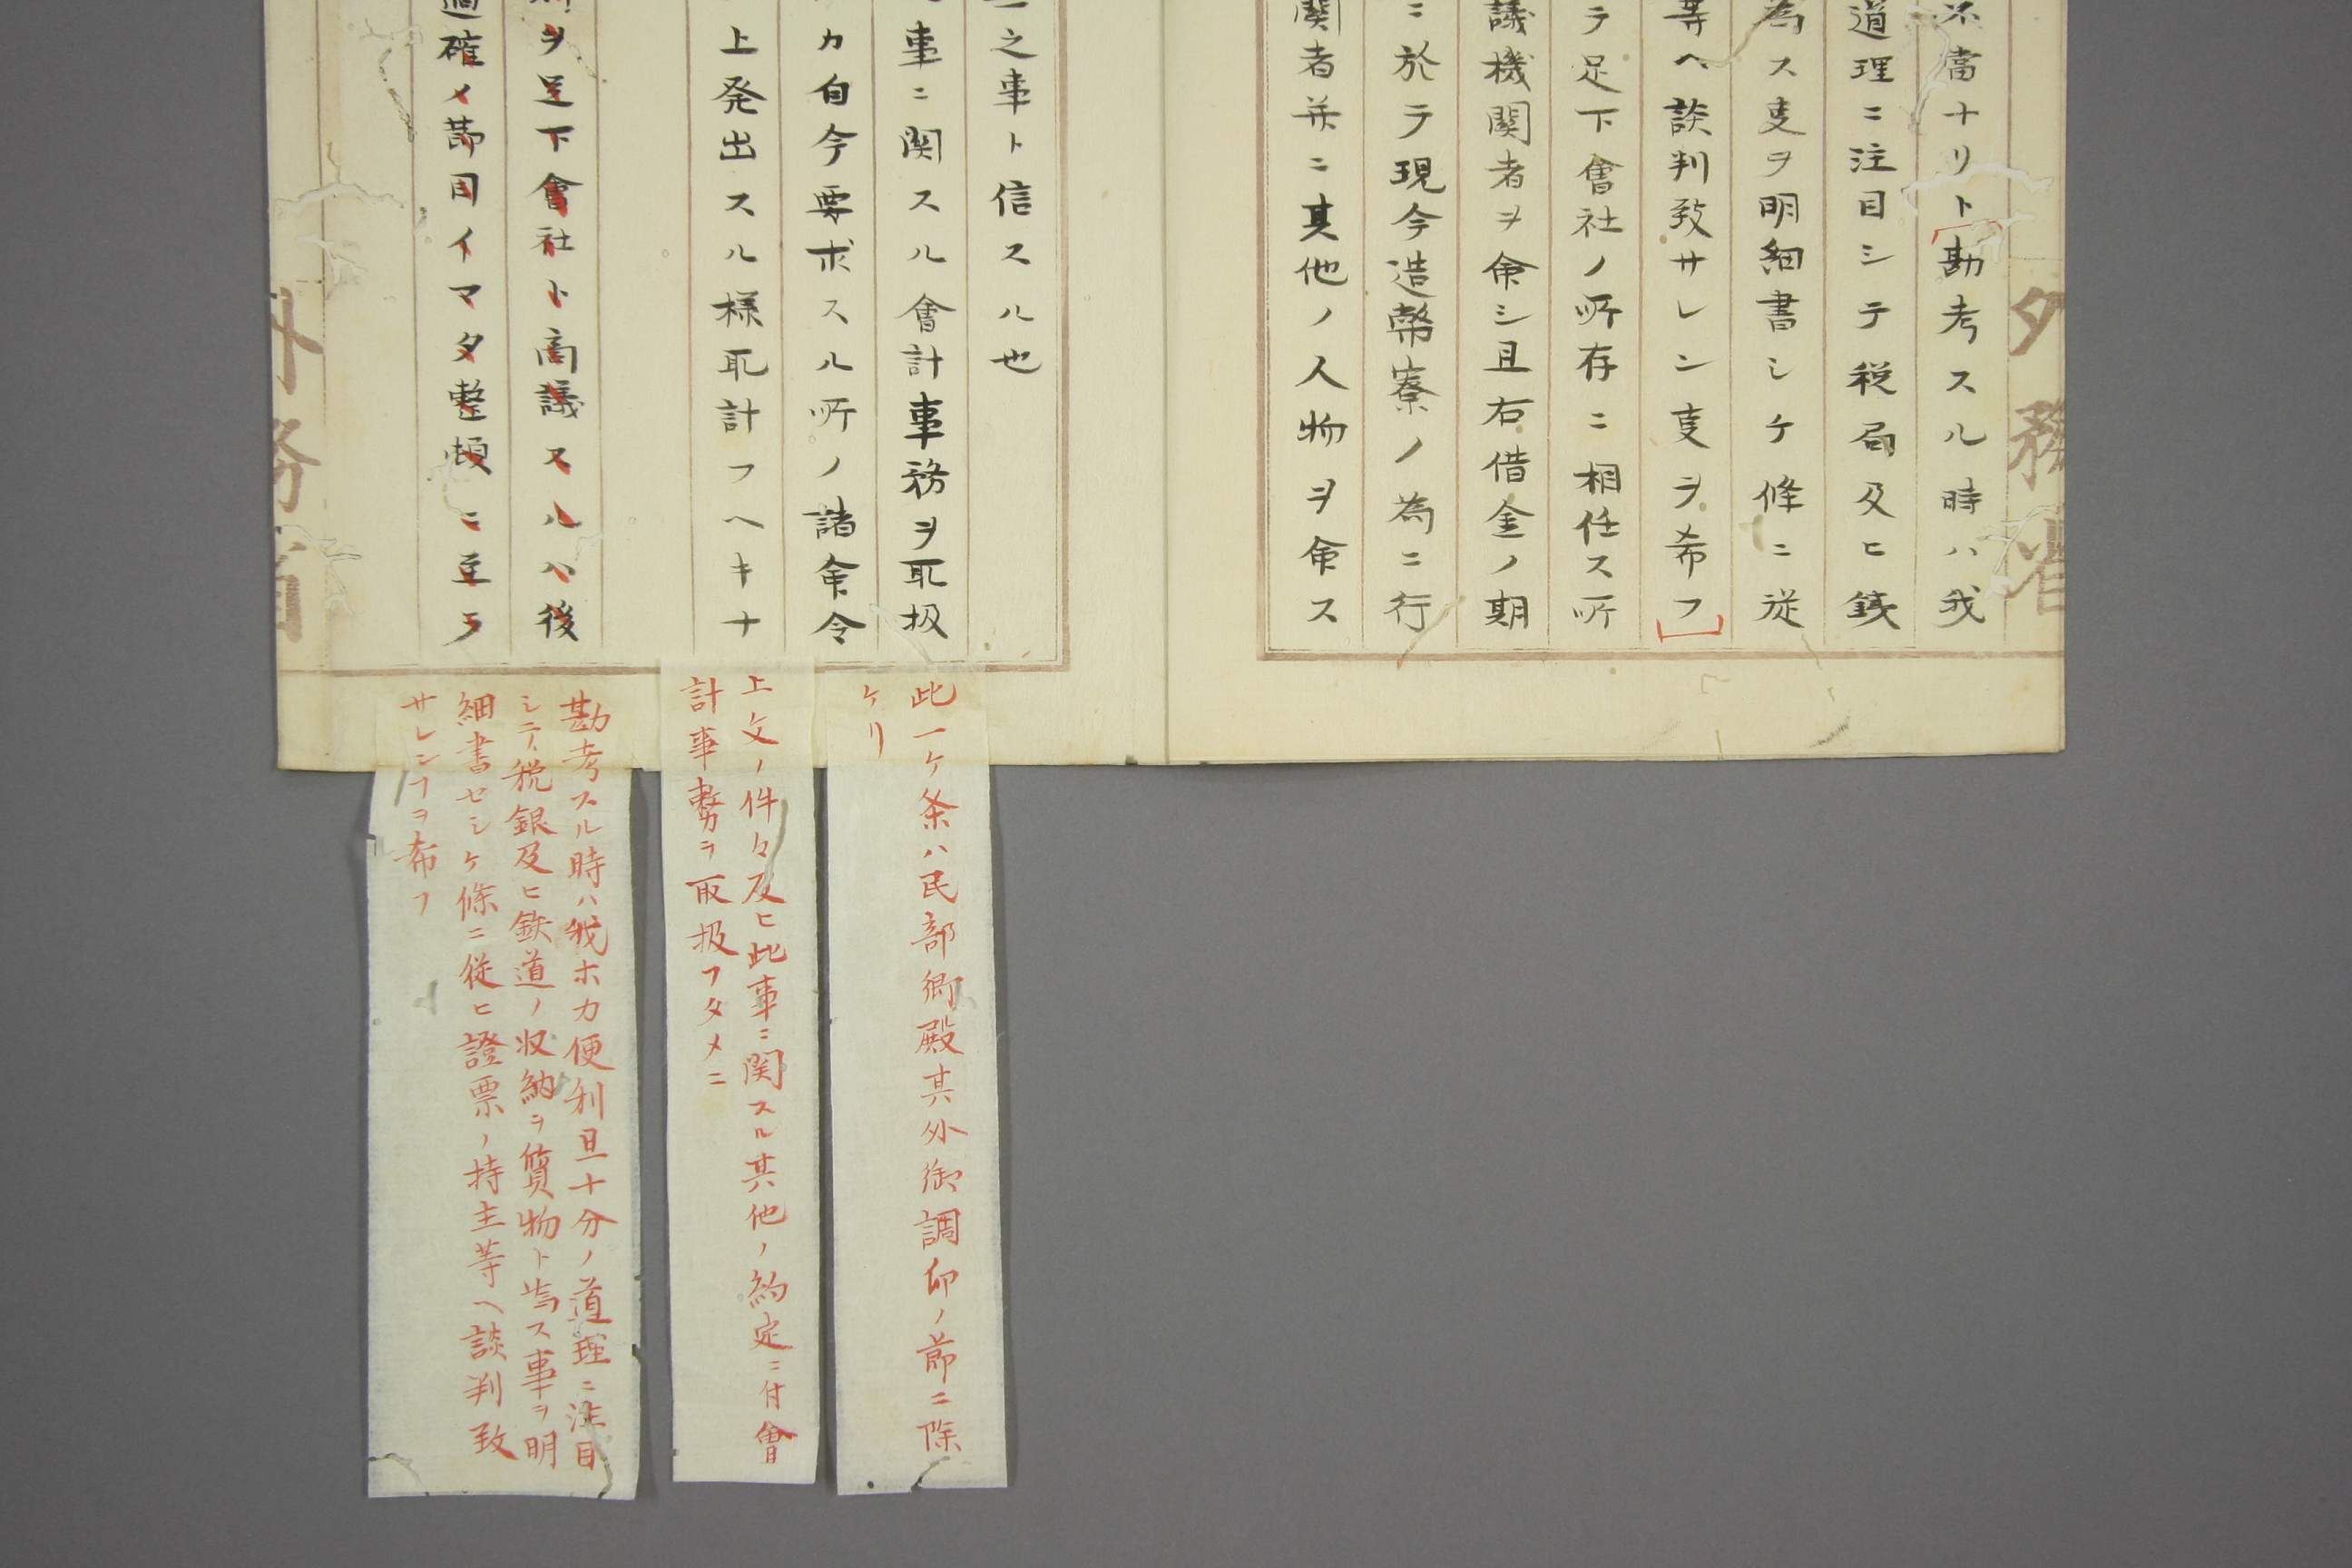 外務省
不當ナリト勘考スル時ハ我
道理ニ注目シテ税局及ヒ銕
為ス叓ヲ明細書シケ條ニ従
等ヘ談判致サレン叓ヲ希フ
テ足下會社ノ所存ニ相任ス所
議機関者ヲ命シ且右借金ノ期
ニ於テ現今造幣寮ノ為ニ行
関者并ニ其他ノ人物ヲ命ス
之事ト信スル也
事ニ関スル會計事務ヲ取扱
カ自今要求スル所ノ諸命令
上発出スル様取計フヘキナ
ヲ足下會社ト商議スルハ後
適確ノ節目イマタ整頓ニ至ラ
外務省
此一ケ条ハ民部卿殿其外御調印ノ節ニ除
ケリ
上文ノ件々及ヒ此事ニ関スル其他ノ約定ニ付會
計事務ヲ取扱フタメニ
勘考スル時ハ我ホカ便利且十分ノ道理ニ注目
シテ税銀及ヒ鉄道ノ収納ヲ質物ト為ス事ヲ明
細書セシケ條ニ従ヒ證票ノ持主等ヘ談判致
サレンヿヲ希フ